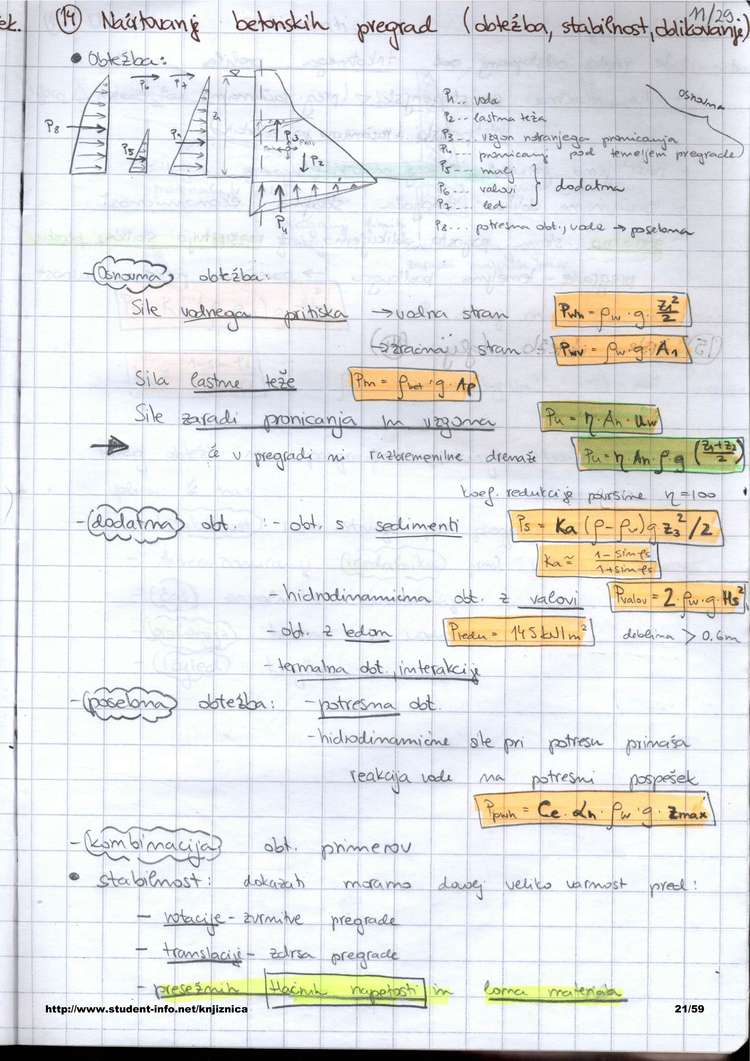 11/29.
ek. (14) Načrtovanje betonskih pregrad (obtežba, stabilnost, oblikovanje)
• Obtežba:
P8 P6 P7 P5 P1 z1 P3 P2 P4
P1.. voda
P2.. lastna teža
P3.. vzgon notranjega pronicanja
P4... pronicanj pod temeljem pregrade
osnovna
P5.... mulj
P6.... valovi
P7.... led
dodatna
P8... potresna obt., voda → posebna
- Osnovna obtežba:
Sile vodnega pritiska → vodna stran Pwh = ρw · g · z1²/2
→ zračna stran Pwv = ρw · g · A1
Sila lastne teže Pm = ρbet · g · Ap
Sile zaradi pronicanja in vzgona Pu = η · An · uw
če v pregradi ni razbremenilne drenaže Pu = η An · ρ g (z1+z2/2)
koef. redukcije površine η = 100
- dodatna obt. : - obt. s sedimenti Ps = Ka (ρ - ρw) g z3²/2
Ka ≈ 1 - sin ρs / 1 + sin ρs
- hidrodinamična obt. z valovi Pvalov = 2 · ρw · g · Hs²
- obt. z ledom Pledu = 145 kN/m² debelina > 0.6m
- termalna obt., interakcije
- posebna obtežba: - potresna obt.
- hidrodinamične sile pri potresu prinaša
reakcija vode na potresni pospešek
Ppwh = Ce · αh · ρw · g · zmax
- kombinacija obt. primerov
• stabilnost: dokazati moramo dovolj veliko varnost pred:
- rotacije - zvrnitve pregrade
- translacije - zdrsa pregrade
- presežnih tlačnih napetosti in loma materiala
http://www.student-info.net/knjiznica 21/59